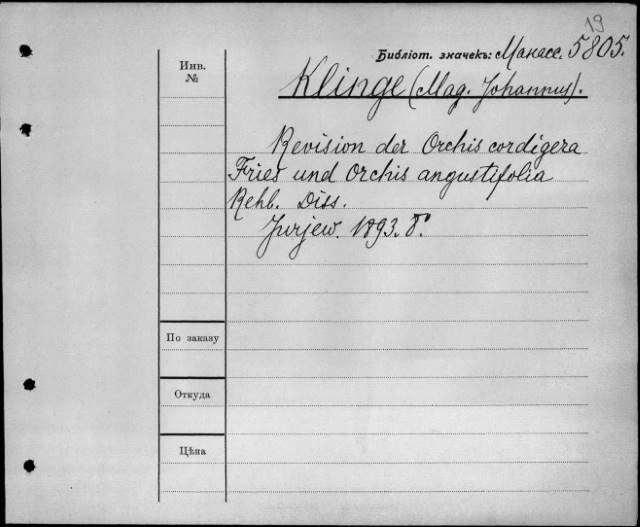 19
Библіот. значекъ: Манасс. 5805.
Инв.
№
Klinge (Mag. Johannes).
Revision der Orchis cordigera
Fries und Orchis angustifolia
Rchb. Diss.
Jurjew. 1893. 8°
По заказу
Откуда
Цѣна